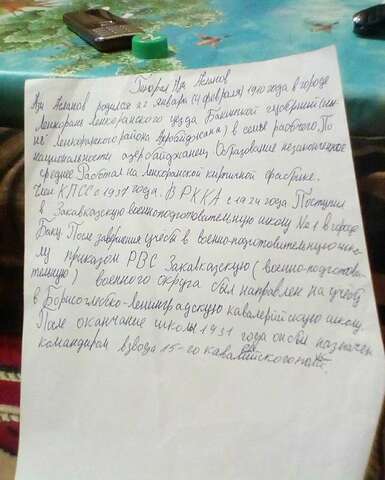 Генерал Ази Асланов
Ази Асланов родился 22 января (4 февраля) 1910 года в городе
Ленкорань Ленкоранского уезда Бакинской губернии (ны-
не Ленкоранского района Азербайджана) в семье рабочего. По
национальности азербайджанец. Образование незаконченное
среднее Работал на Ленкоранской кирпичной фабрике.
Член КПСС с 1937 года. В РККА с 1924 года Поступил
в Закавказскую военноподготовительную школу №1 в городе
Баку После завершения учёбы в военно-подготовительную шко-
лу приказом РВС Закавказскую (военно-подготови-
тельную) военного округа был направлен на учёбу
в Борисоглебско-ленинградскую кавалерийскую школу.
После окончание школы 1931 года он был назначен
командиром взвода 15-го кавалерийского полка.